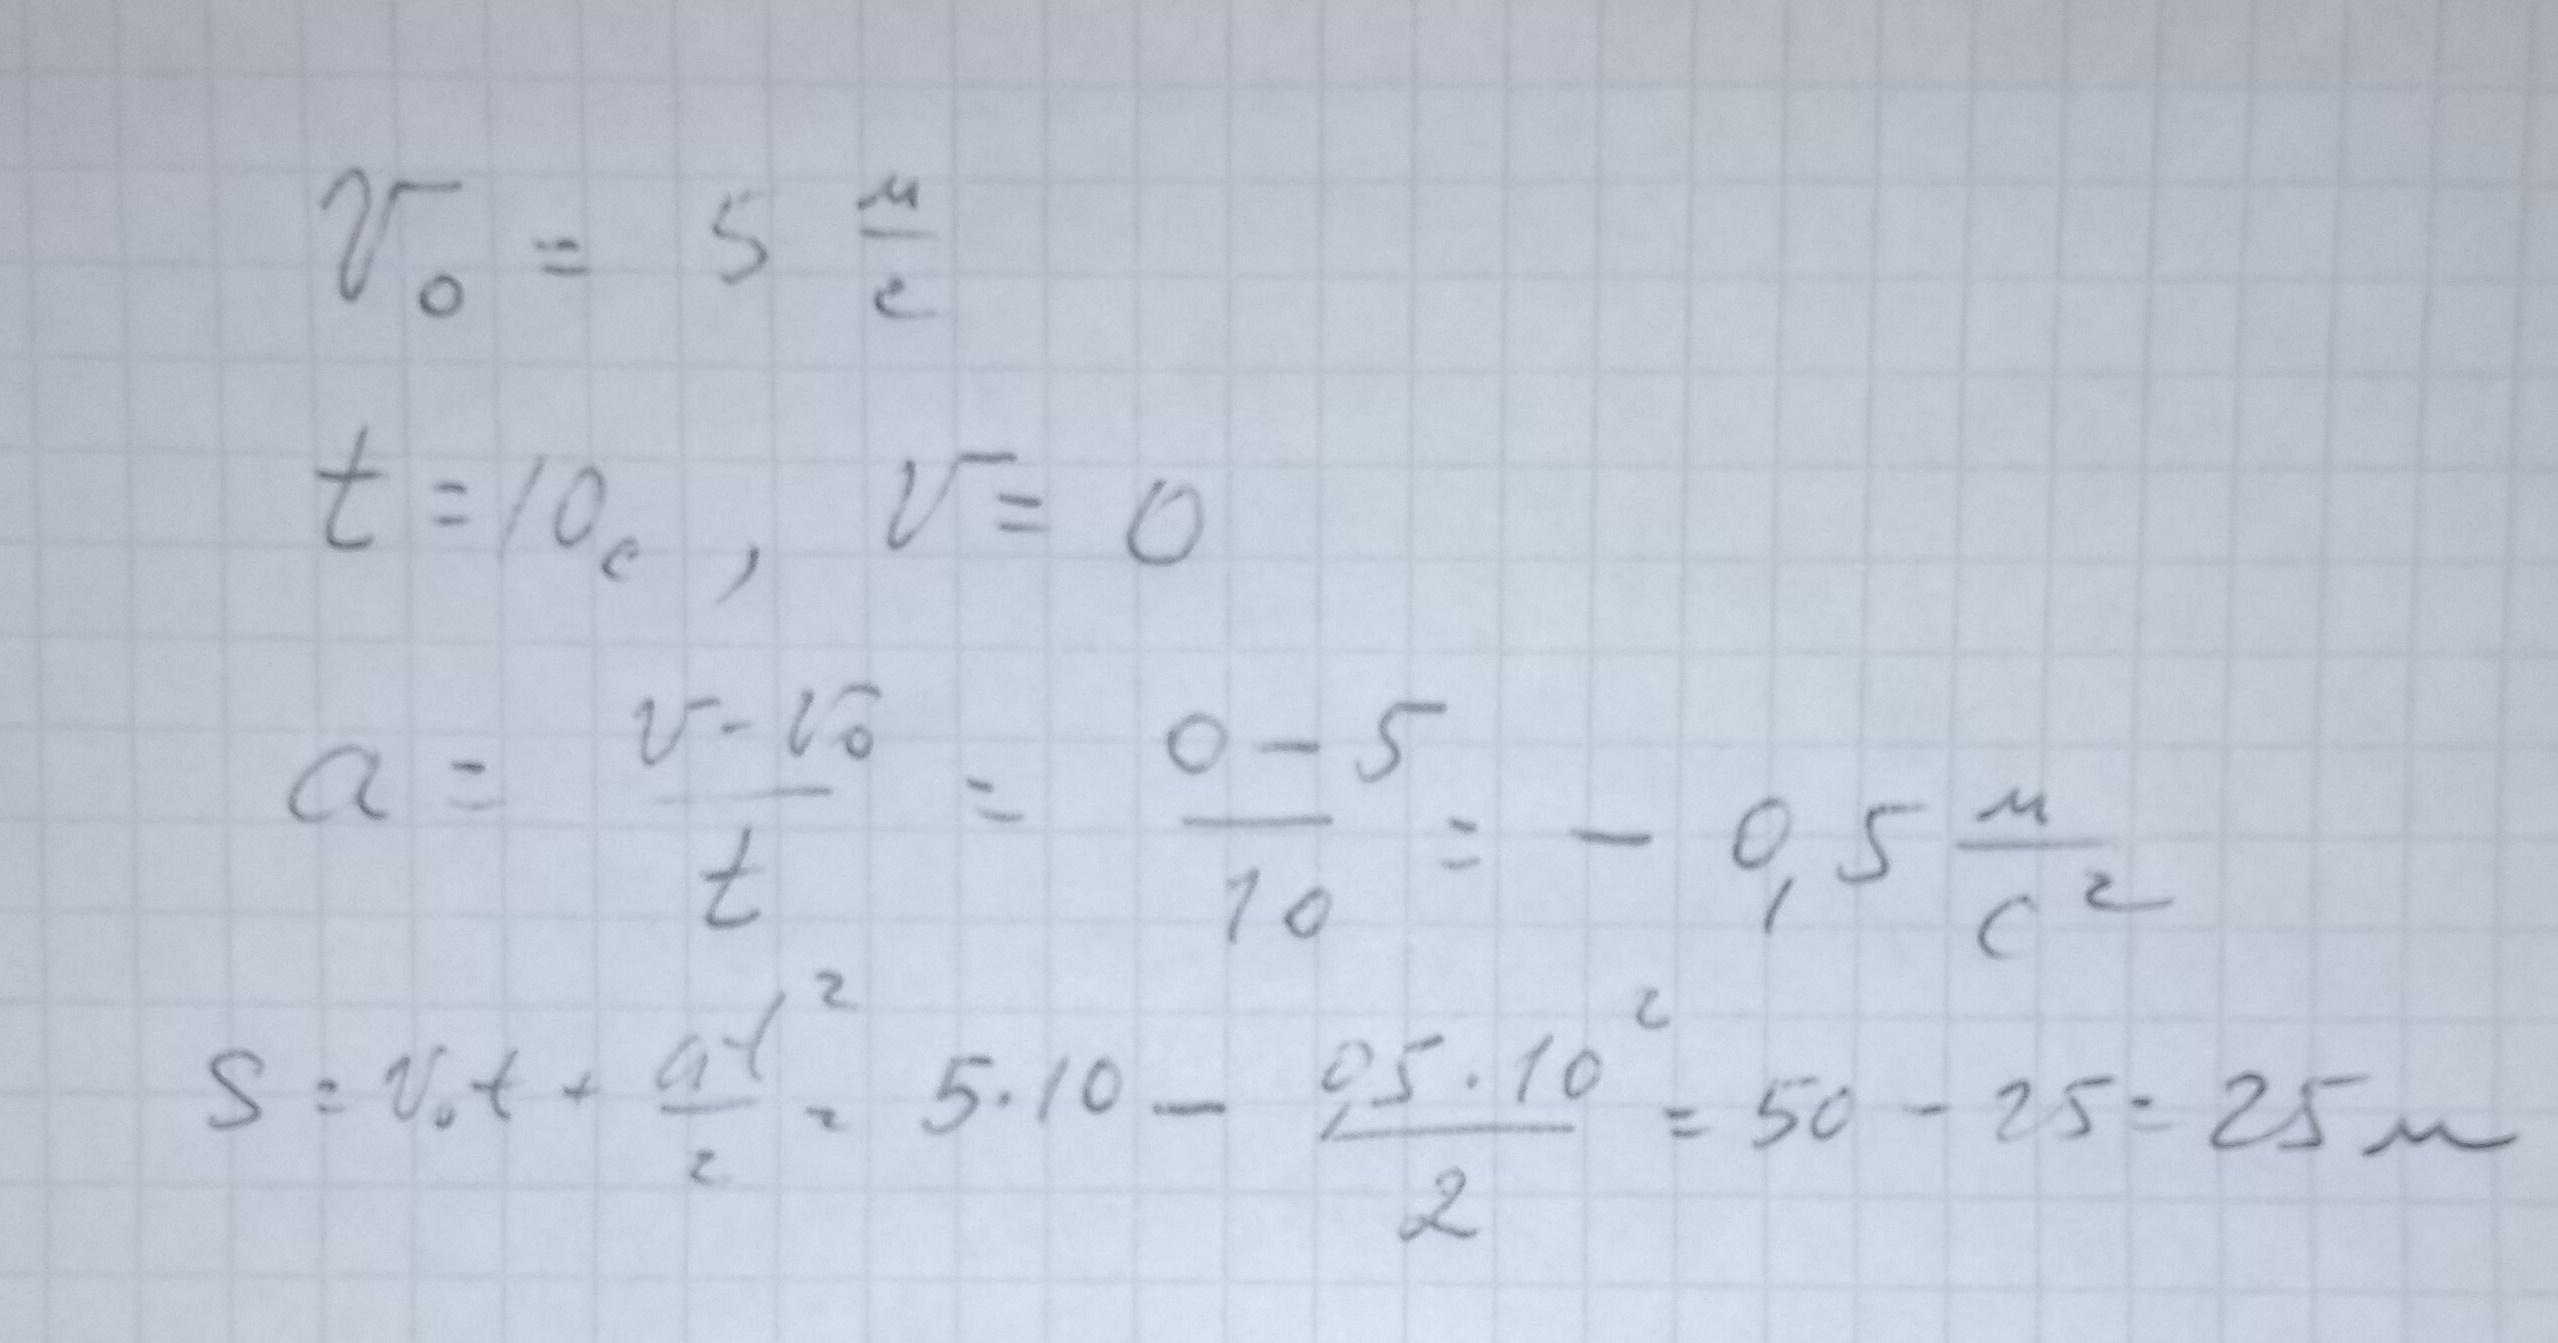 v₀ = 5 м/с
t = 10 с , v = 0
a = (v - v₀)/t = (0 - 5)/10 = - 0,5 м/с²
S = v₀t + at²/2 = 5·10 - 0,5·10²/2 = 50 - 25 = 25 м